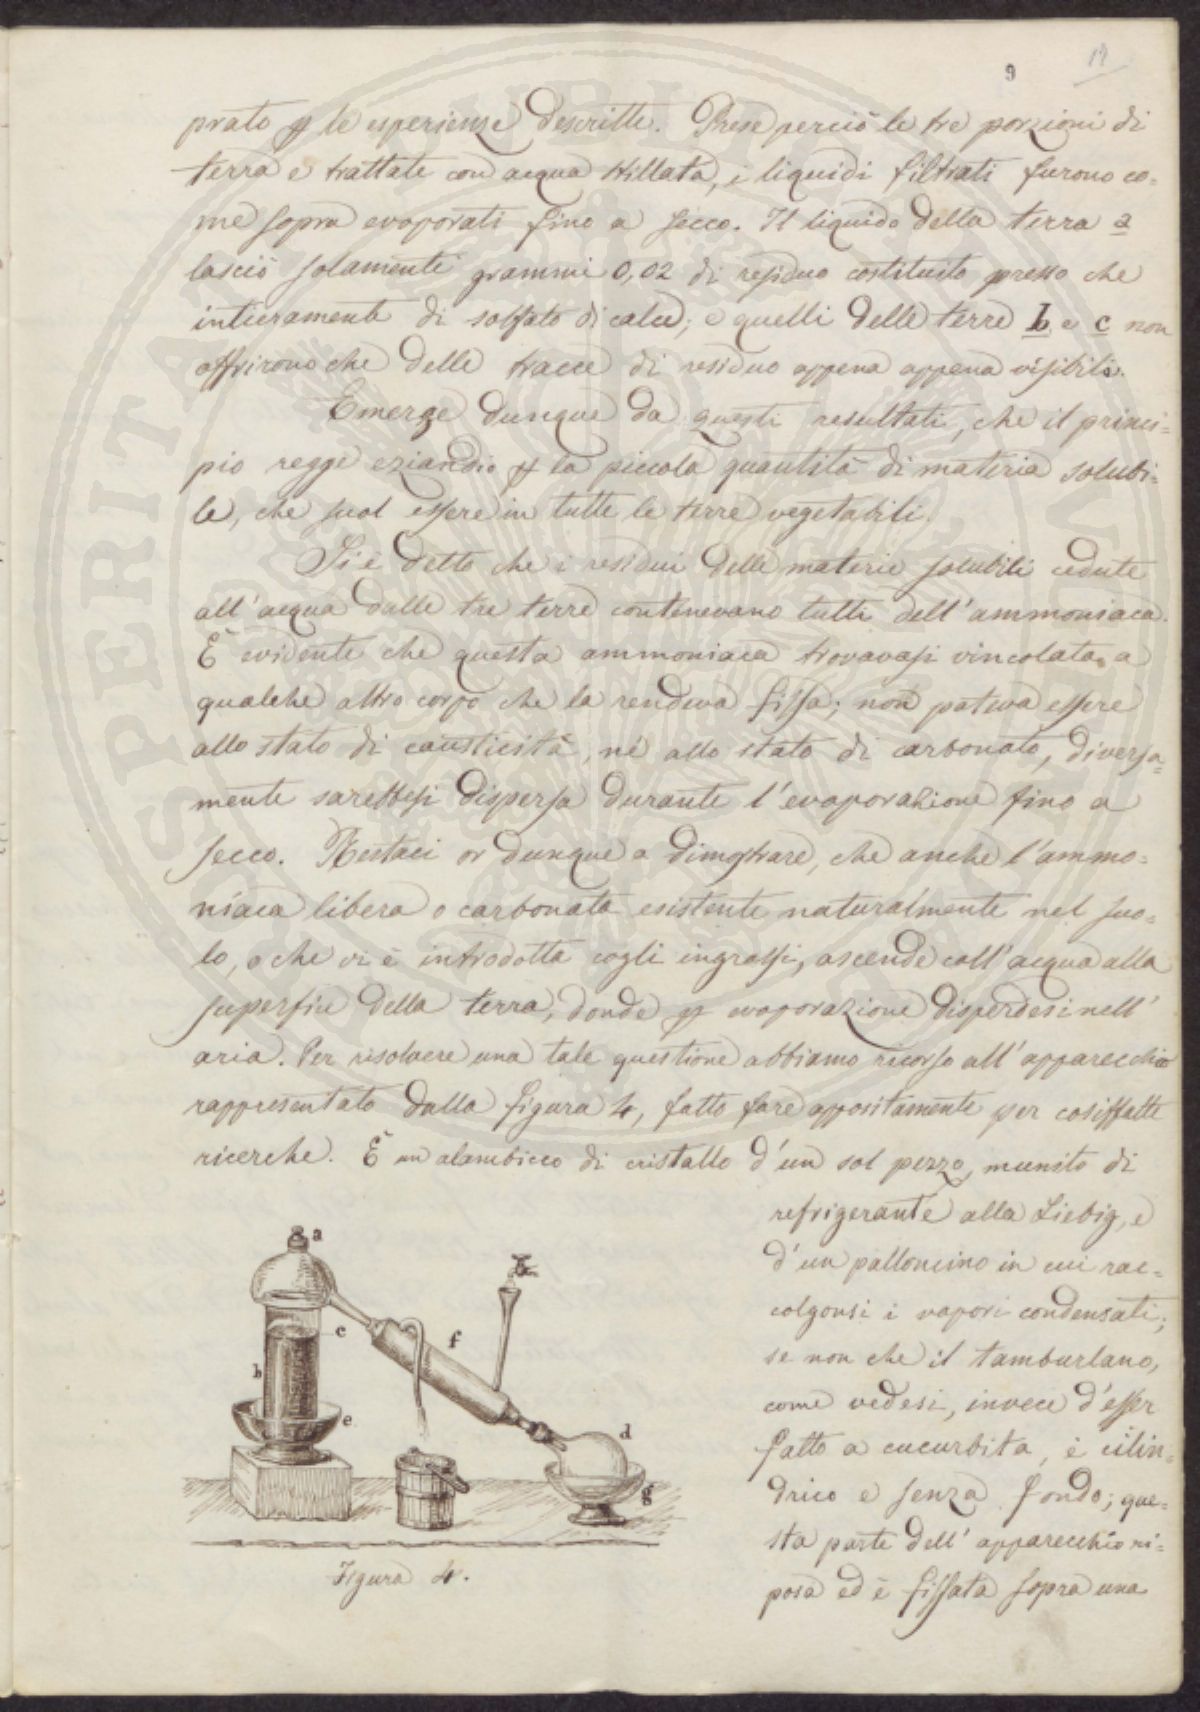 9
prato p le esperienze descritte. Prese perciò le tre porzioni di
terra e trattate con acqua stillata, i liquidi filtrati furono co=
me sopra evaporati fino a secco. Il liquido della terra a
lasciò solamente grammi 0,02 di residuo costituito presso che
intieramente di solfato di calce; e quelli delle terre b e c non
offrirono che delle tracce di residuo appena appena visibili.
Emerge dunque da questi resultati, che il princi=
pio regge eziandio p la piccola quantità di materia solubi=
le, che suol essere in tutte le terre vegetabili.
Si è detto che i residui delle materie solubili cedute
all'acqua dalle tre terre contenevano tutti dell'ammoniaca.
È evidente che questa ammoniaca trovavasi vincolata a
qualche altro corpo che la rendeva fissa; non poteva essere
allo stato di causticità, nè allo stato di carbonato, diversa=
mente sarebbesi dispersa durante l'evaporazione fino a
secco. Restaci or dunque a dimostrare, che anche l'ammo=
niaca libera o carbonata esistente naturalmente nel suo=
lo, o che vi è introdotta cogli ingrassi, ascende coll'acqua alla
superficie della terra, donde p evaporazione disperdesi nell'
aria. Per risolvere una tale questione abbiamo ricorso all'apparecchio
rappresentato dalla figura 4, fatto fare appositamente per cosiffatte
ricerche. È un alambicco di cristallo d'un sol pezzo, munito di
refrigerante alla Liebig, e
d'un palloncino in cui rac=
colgonsi i vapori condensati;
se non che il tamburlano,
come vedesi, invece d'esser
fatto a cucurbita, è cilin=
drico e senza fondo; que=
sta parte dell'apparecchio ri=
posa ed è fissata sopra una
a
c
b
e
f
d
g
Figura 4.
SPERITAS PUBLICA